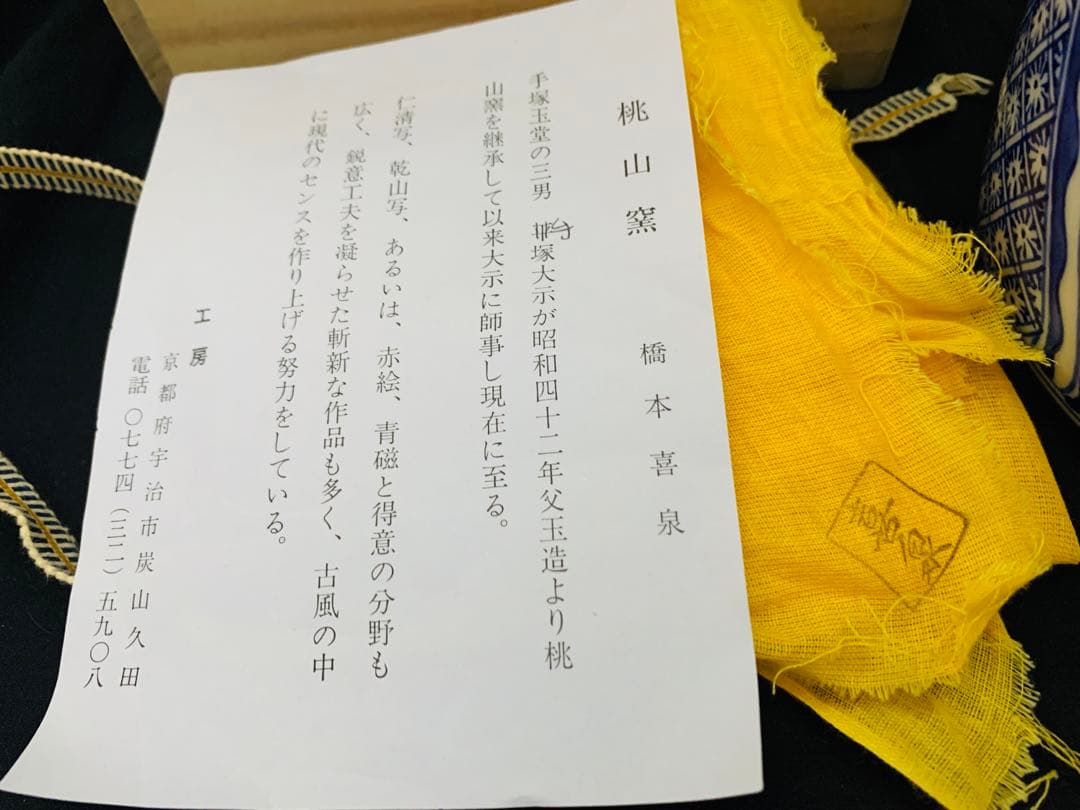 桃山窯　橋本喜泉
手塚玉堂の三男　手塚大示が昭和四十二年父玉造より桃
山窯を継承して以来大示に師事し現在に至る。
仁清写、乾山写、あるいは、赤絵、青磁と得意の分野も
広く、鋭意工夫を凝らせた斬新な作品も多く、古風の中
に現代のセンスを作り上げる努力をしている。
工房
京都府宇治市炭山久田
電話〇七七四(三二)五九〇八